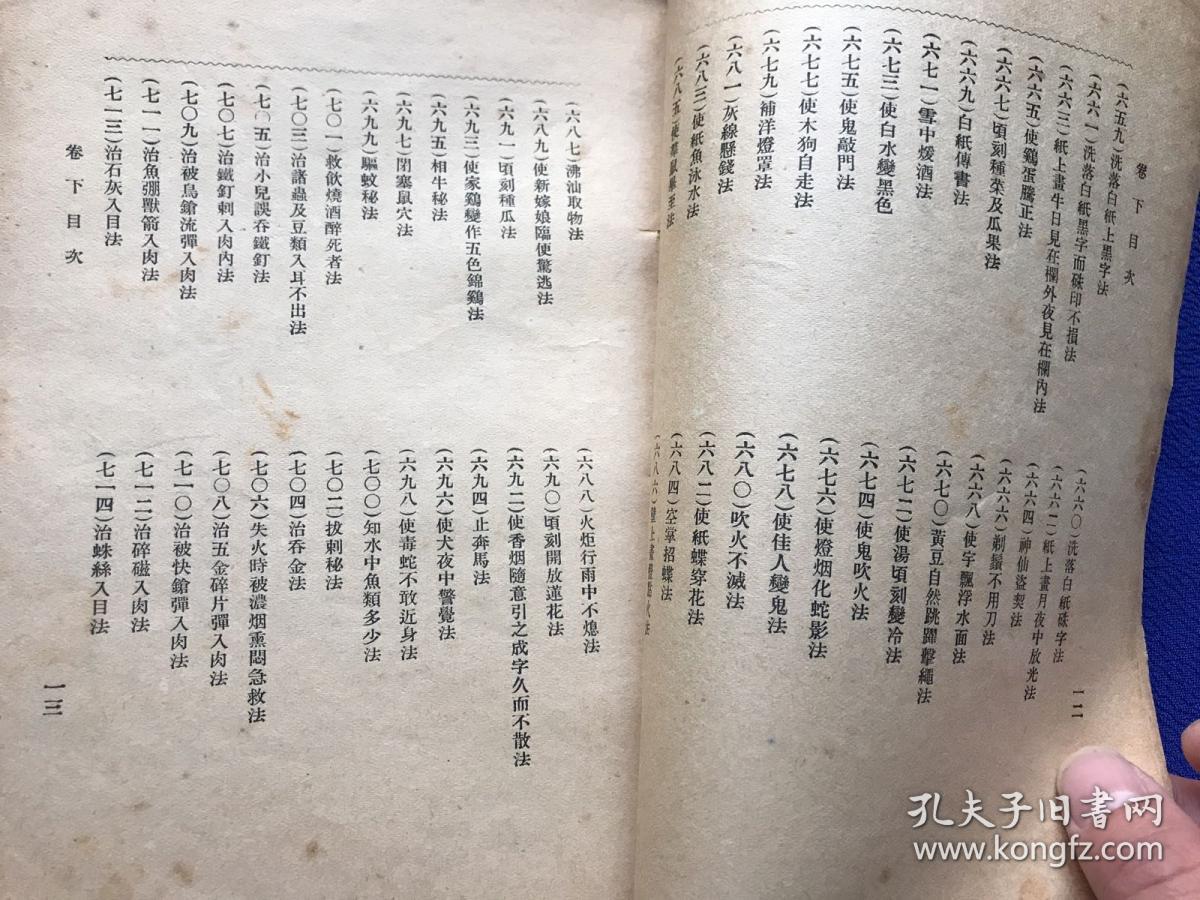 卷下目次
一二
(六五九)洗落白紙上黑字法
(六六〇)洗落白紙硃字法
(六六一)洗落白紙黑字而硃印不損法
(六六二)紙上畫月夜中放光法
(六六三)紙上畫牛日見在欄外夜見在欄內法
(六六四)神仙盜契法
(六六五)使鷄蛋騰正法
(六六六)剃鬚不用刀法
(六六七)頃刻種菜及瓜果法
(六六八)使字飄浮水面法
(六六九)白紙傳書法
(六七〇)黃豆自然跳躍擊繩法
(六七一)雪中煖酒法
(六七二)使湯頃刻變冷法
(六七三)使白水變黑色
(六七四)使鬼吹火法
(六七五)使鬼敲門法
(六七六)使燈烟化蛇影法
(六七七)使木狗自走法
(六七八)使佳人變鬼法
(六七九)補洋燈罩法
(六八〇)吹火不滅法
(六八一)灰線懸錢法
(六八二)使紙蝶穿花法
(六八三)使紙魚泳水法
(六八四)空掌招蝶法
(六八五)使
(六八六)
(六八七)沸油取物法
(六八八)火炬行雨中不熄法
(六八九)使新嫁娘臨使驚逃法
(六九〇)頃刻開放蓮花法
(六九一)頃刻種瓜法
(六九二)使香烟隨意引之成字久而不散法
(六九三)使家鷄變作五色錦鷄法
(六九四)止奔馬法
(六九五)相牛秘法
(六九六)使犬夜中警覺法
(六九七)閉塞鼠穴法
(六九八)使毒蛇不敢近身法
(六九九)驅蚊秘法
(七〇〇)知水中魚類多少法
(七〇一)救飲燒酒醉死者法
(七〇二)拔刺秘法
(七〇三)治諸蟲及豆類入耳不出法
(七〇四)治吞金法
(七〇五)治小兒誤吞鐵釘法
(七〇六)失火時被濃烟熏悶急救法
(七〇七)治鐵釘刺入肉內法
(七〇八)治五金碎片彈入肉法
(七〇九)治被鳥鎗流彈入肉法
(七一〇)治被快鎗彈入肉法
(七一一)治魚弸獸箭入肉法
(七一二)治碎磁入肉法
(七一三)治石灰入目法
(七一四)治蛛絲入目法
卷下目次
一三
孔夫子旧书网
www.kongfz.com